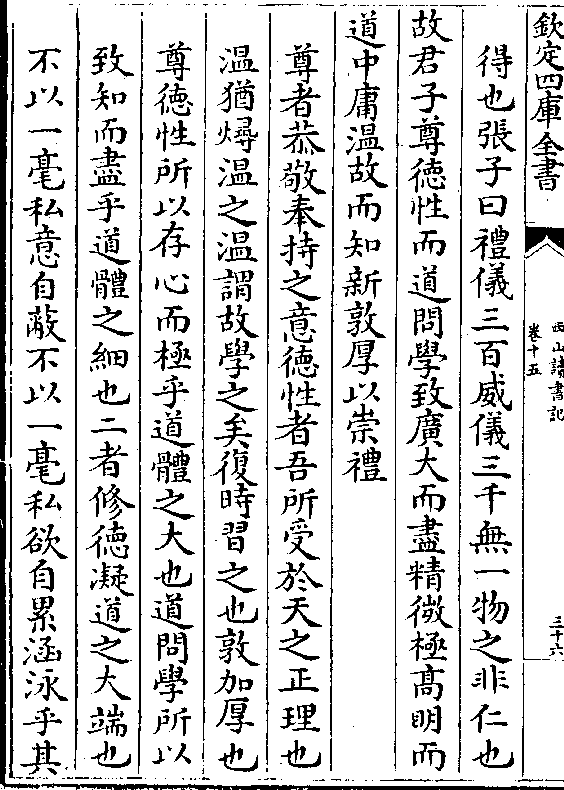 欽定四庫全書
西山讀書記
卷十五
三十六
得也張子曰禮儀三百威儀三千無一物之非仁也
故君子尊德性而道問學致廣大而盡精微極髙明而
道中庸温故而知新敦厚以崇禮
尊者恭敬奉持之意德性者吾所受於天之正理也
温猶燖温之温謂故學之矣復時習之也敦加厚也
尊德性所以存心而極乎道體之大也道問學所以
致知而盡乎道體之細也二者修德凝道之大端也
不以一毫私意自蔽不以一毫私欲自累涵泳乎其